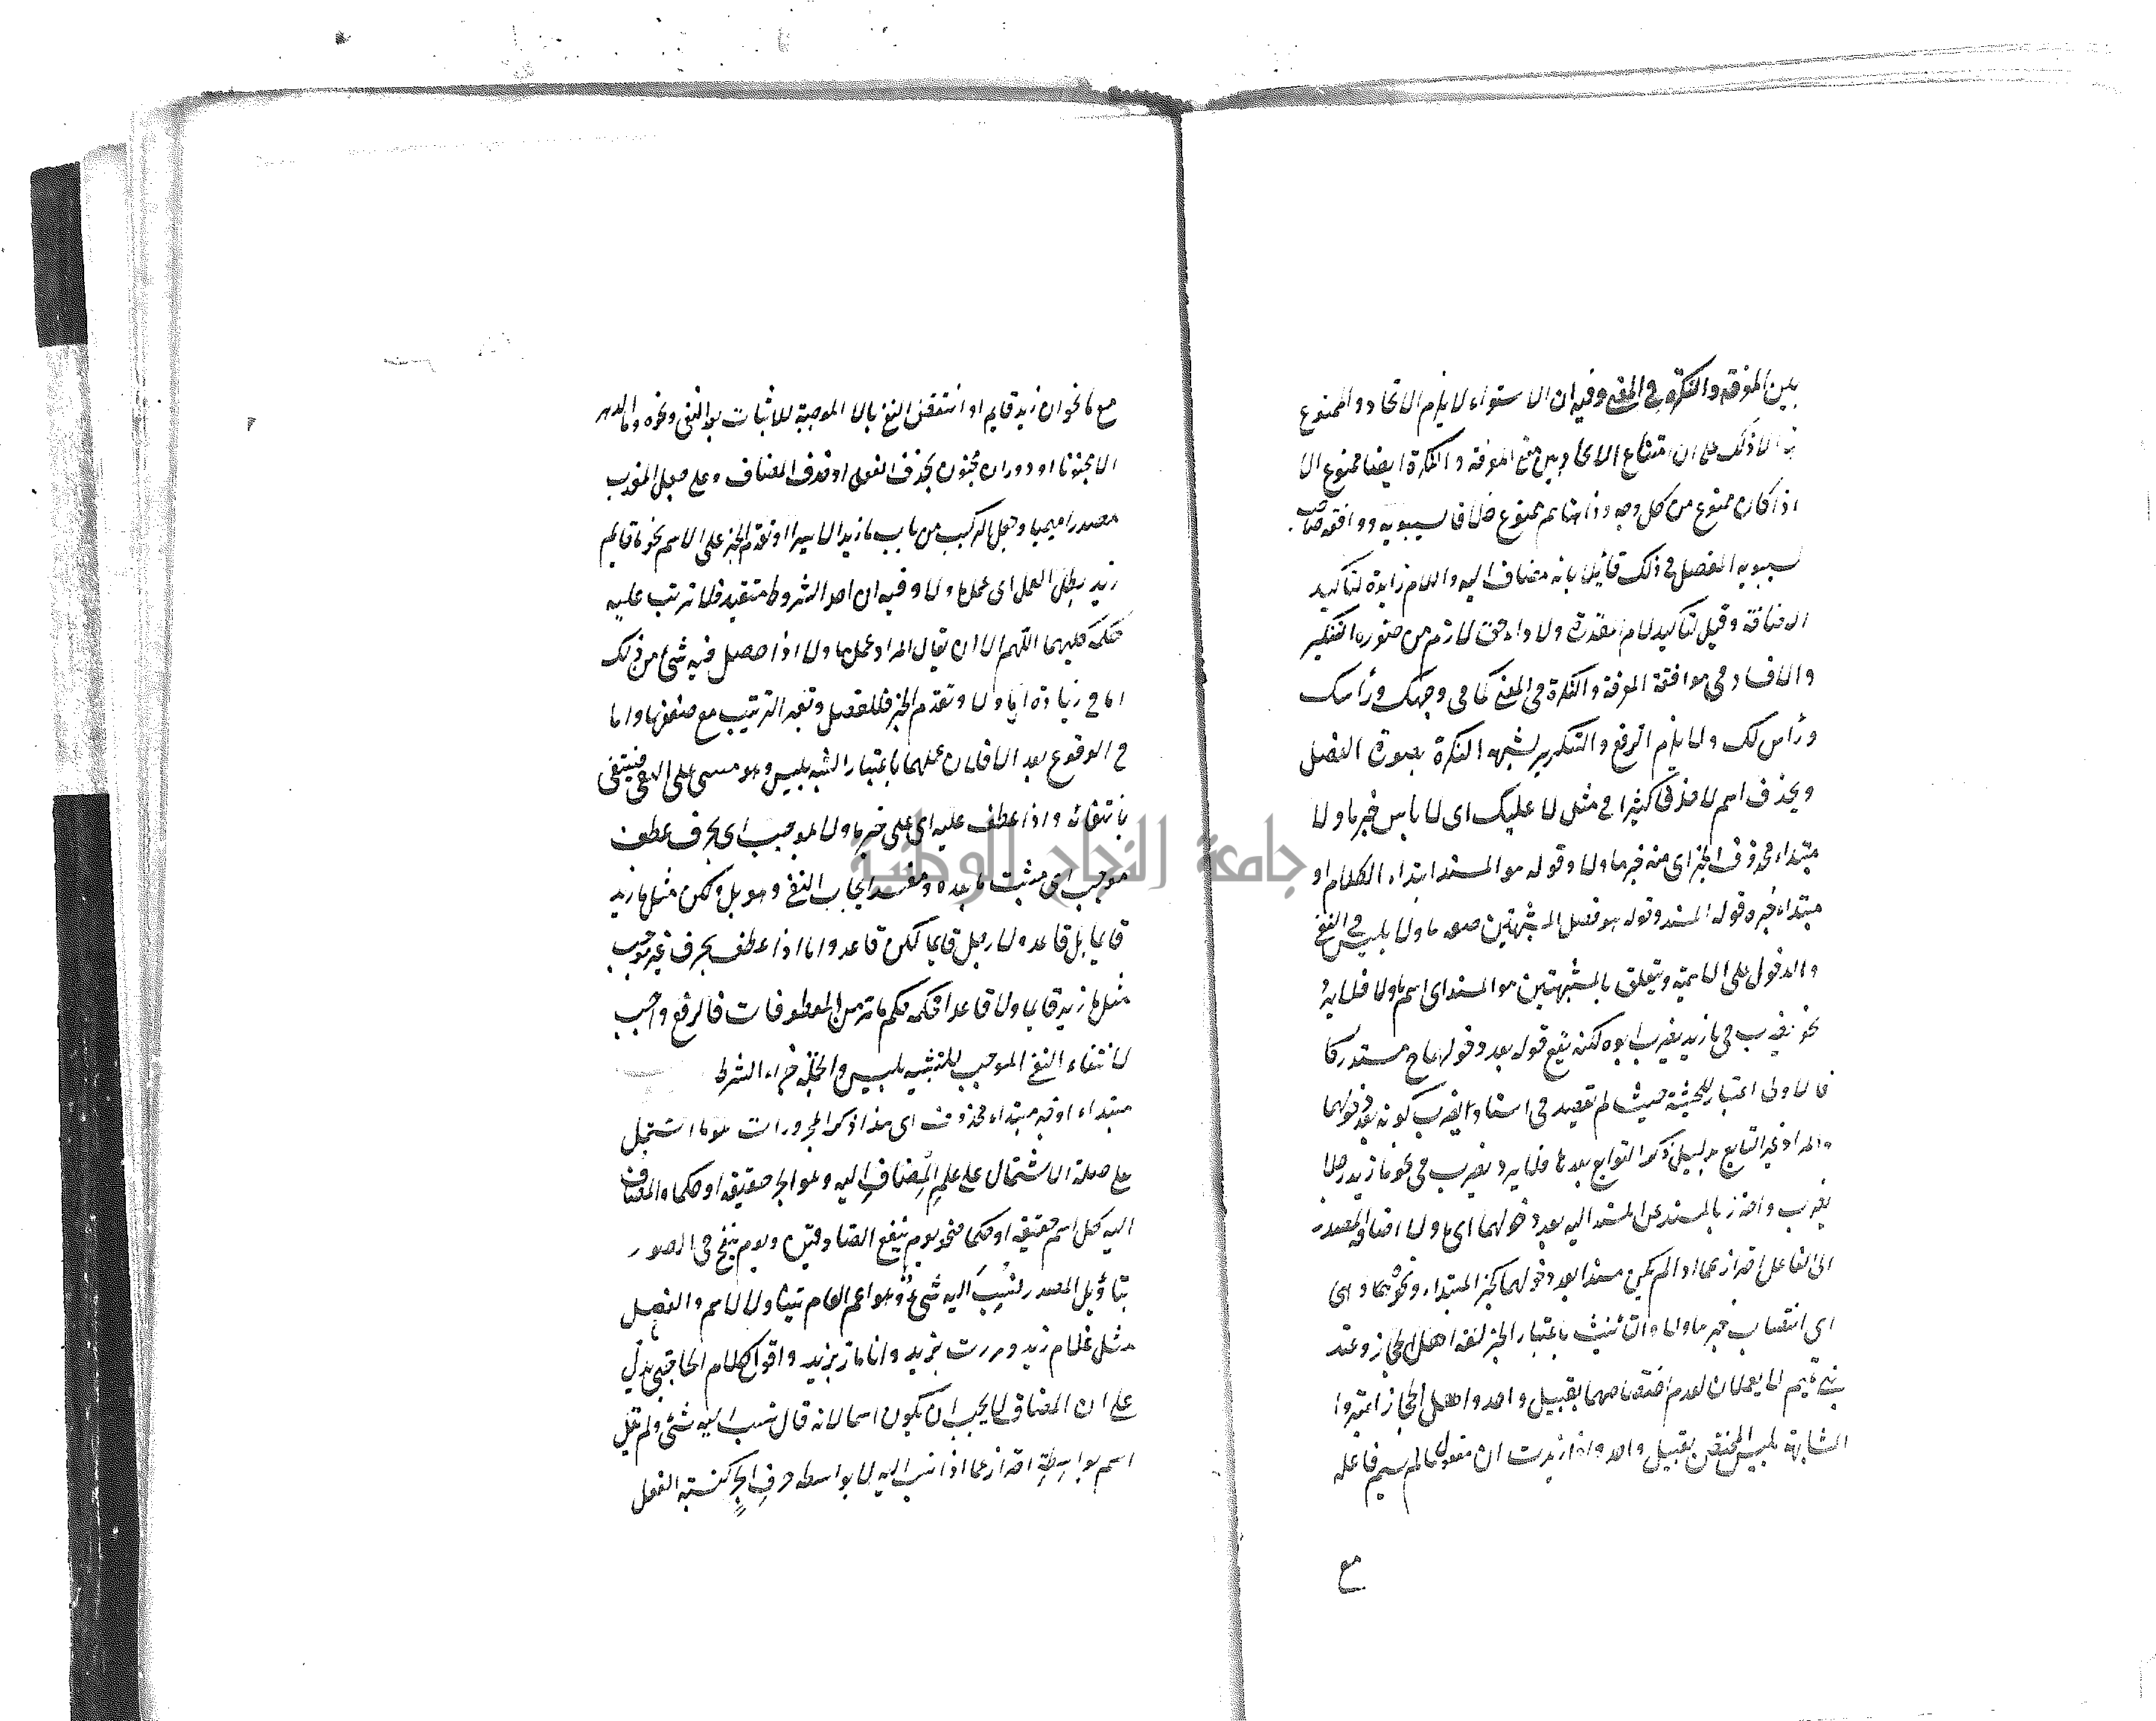 بين المعرفة والنكرة في المعنى وفيه ان الاستواء لا يلزم الاتحاد والممنوع
الا ذلك على ان امتناع الاتحاد بين معنى المعرفة والنكرة ايضا ممنوع الا
اذا كان ممنوع من كل وجه وذا ههنا ممنوع خلافا لسيبويه ووافقه صاحب
سيبويه المفصل في ذلك قائلا بانه مضاف اليه واللام زايدة لتاكيد
الاضافة وقيل لتاكيد لام المقدرة ولا لازم من صورة التنكير
والافساد في موافقة المعرفة والنكرة في المعنى كما في وجهك ورأسك
ورأس لك ولا يلزم الرفع والتكرير لشبهه النكرة بصورة الفصل
ويحذف اسم لا حذفا كثيرا في مثل لا عليك اى لا باس خبر ما ولا
مبتداء محذوف الخبر اى منه خبر ما ولا وقوله هو المسند ابتداء الكلام او
مبتداء خبره قوله المسند وقوله هو فصل المشبهتين صفة ما ولا بليس في النفى
والدخول على الاسمية ويتعلق بالمشبهتين هو المسند اى اسم ما ولا فلا يرد
نحو يضرب في ما زيد يضرب ابوه لكنه يقع قوله بعد دخولهما ح مستدركا
فالاولى اعتبار الحيثية حيث لم يقصد في اسناد يضرب كونه بعد دخولهما
والمراد غير التابع بدليل ذكر التوابع بعدها فلا يرد يضرب في نحو ما زيد رجلا
يضرب واحترز بالمسند عن المسند اليه بعد دخولهما اى ما ولا اضافة المصدر
الى الفاعل احتراز عما اذا لم يكن مسندا بعد دخولهما كخبر المبتداء ونحوهما وهى
اى انتصاب خبر ما ولا والتانيث باعتبار الخبر لغة اهل الحجاز وعند
بنى تميم لا يعملان لعدم اختصاصهما بقبيل واحد واهل الحجاز اعتبروا
المشابهة بليس المختص بقبيل واحد واذا زيدت ان مفعول ما لم يسم فاعله
مع
مع ما نحو ان زيد قايم او انتقض النفى بالا الموجبة للاثبات بعد النفى ونحوه وما الدهر
الا مجنونا او دوران مجنون بحذف الفعل او حذف المضاف وعلى جعل المعذب
مصدرا ميميا وجعل التركيب من باب ما زيد الا سيرا او تقدم الخبر على الاسم نحو ما قايم
زيد بطل العمل اى عمل ما ولا وفيه ان احد الشروط متقيد فلا ترتب عليه
حكم كليهما اللهم الا ان يقال المراد عمل ما ولا اذا حصل فيه شئ من ذلك
اما في زيادة ان ما ولا وتقدم الخبر فللفصل وتغير الترتيب مع ضعفها واما
في الوقوع بعد الا فلان عملهما باعتبار الشبه بليس وهو مبنى على النفى فينتفى
بانتفائه واذا عطف عليه اى على خبر ما ولا بموجب اى بحرف عطف
موجب اى مثبت ما بعده ومفسد ايجاب النفى وهو بل ولكن مثل ما زيد
قايما بل قاعد ولا رجل قايما لكن قاعد واما اذا عطف بحرف غير موجب
مثل ما زيد قايما ولا قاعدا فحكمه حكم ما مر من المعطوفات فالرفع واجب
لانتفاء النفى الموجب للتشبيه بليس والجملة جزاء الشرط
مبتداء او خبر مبتداء محذوف اى هذا ذكر المجرورات هو ما اشتمل
على صلة الاشتمال على علم المضاف اليه وهو الجر حقيقة او حكما والمضاف
اليه كل اسم حقيقة او حكما نحو يوم ينفع الصادقين ويوم ينفخ في الصور
بتاويل المصدر نُسِبَ اليه شئ وهو اعم العام يتناول الاسم والفعل
مثل غلام زيد ومررت بزيد وانا مار بزيد واقول كلام الحاجبي يدل
على ان المضاف لا يجب ان يكون اسما لانه قال نسب اليه شئ ولم يقل
اسم بواسطة احتراز عما اذا نسب اليه لا بواسطه حرف الجر كنسبة الفعل
جامعة النجاح الوطنية